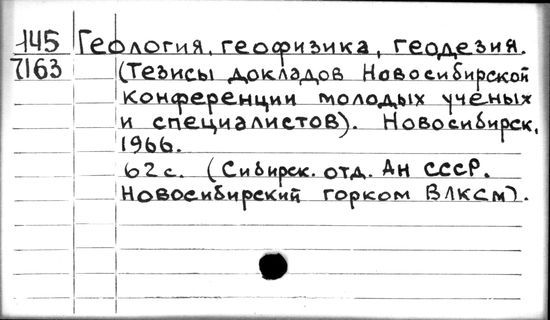 145 Геология, геофизика, геодезия.
7163 (Тезисы докладов Новосибирской
конференции молодых ученых
и специалистов). Новосибирск,
1966.
62 с. (Сибирск. отд. АН СССР.
Новосибирский горком ВЛКСМ).